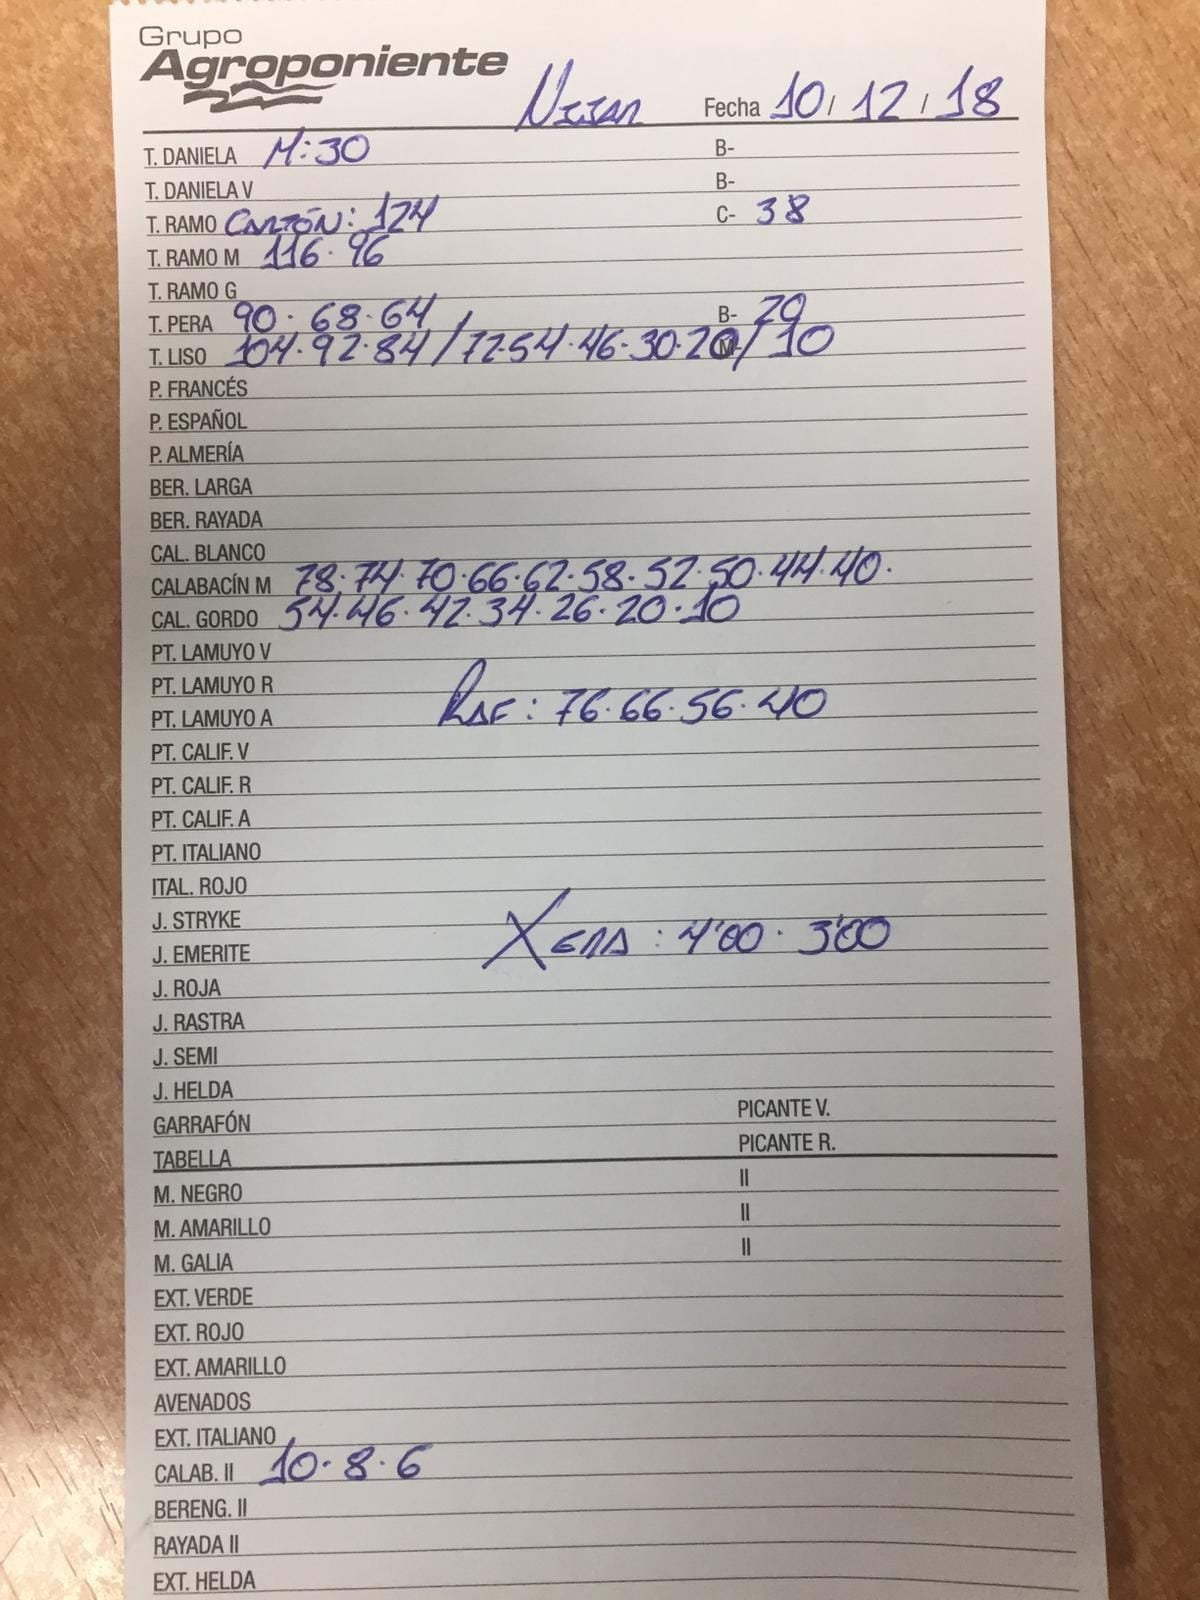 Grupo
Agroponiente
Nijar Fecha 10/ 12 / 18
T. DANIELA M:30 B-
T. DANIELA V B-
T. RAMO CARTÓN: 124 C- 38
T. RAMO M 116·96
T. RAMO G
T. PERA 90·68·64 B- 20
T. LISO 104·92·84/72·54·46·30·20/10 M-
P. FRANCÉS
P. ESPAÑOL
P. ALMERÍA
BER. LARGA
BER. RAYADA
CAL. BLANCO
CALABACÍN M 78·74·70·66·62·58·52·50·44·40·
CAL. GORDO 54·46·42·34·26·20·10
PT. LAMUYO V
PT. LAMUYO R
PT. LAMUYO A RAF: 76·66·56·40
PT. CALIF. V
PT. CALIF. R
PT. CALIF. A
PT. ITALIANO
ITAL. ROJO
J. STRYKE
J. EMERITE XERA: 4'00·3'00
J. ROJA
J. RASTRA
J. SEMI
J. HELDA
GARRAFÓN PICANTE V.
TABELLA PICANTE R.
M. NEGRO II
M. AMARILLO II
M. GALIA II
EXT. VERDE
EXT. ROJO
EXT. AMARILLO
AVENADOS
EXT. ITALIANO
CALAB. II 10·8·6
BERENG. II
RAYADA II
EXT. HELDA